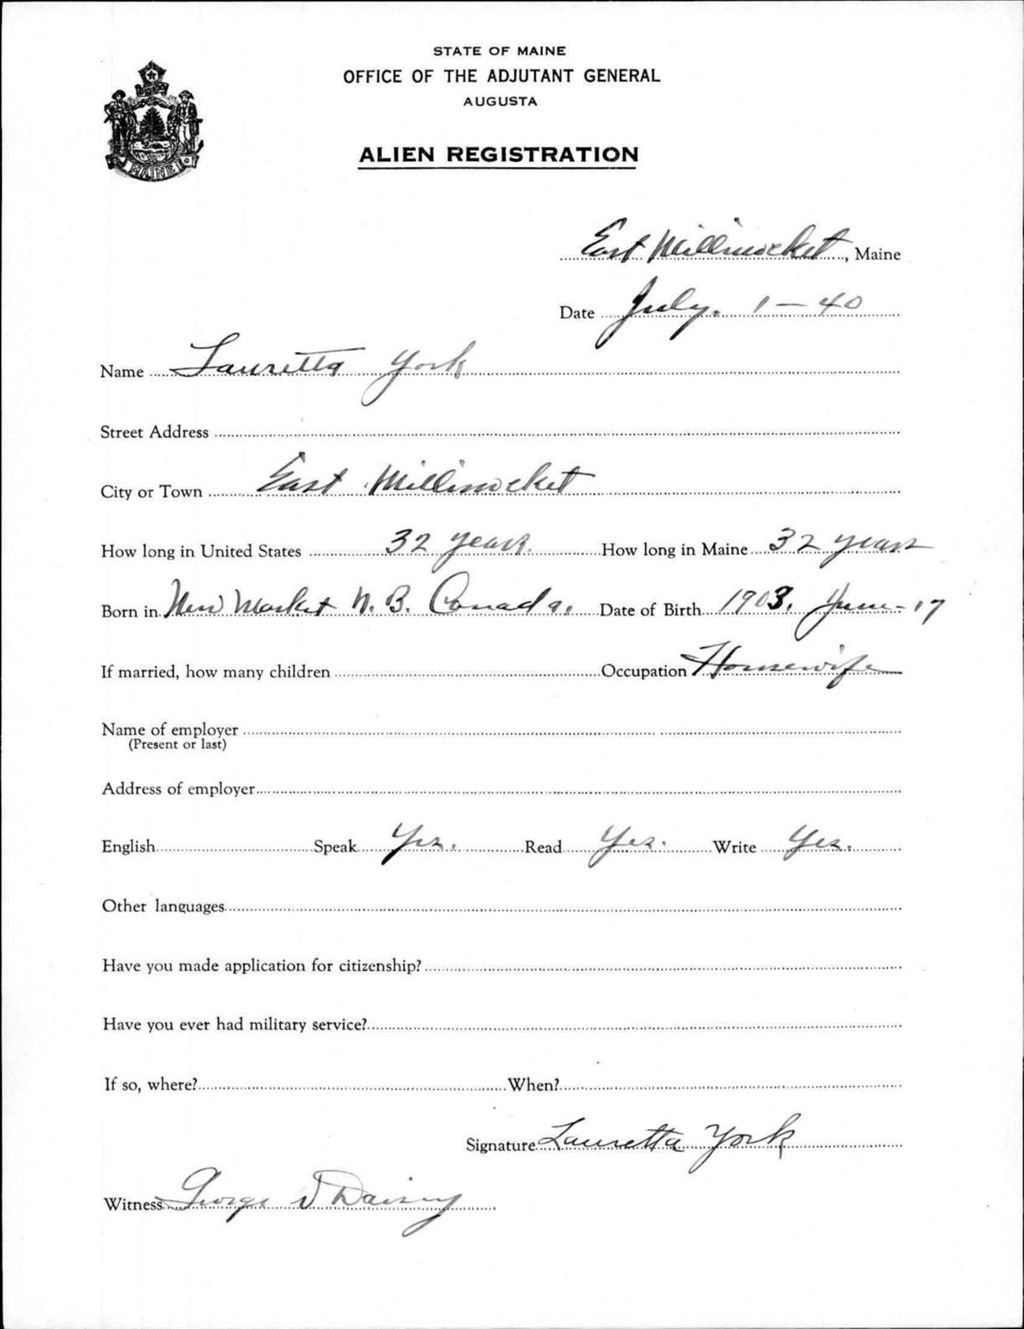 STATE OF MAINE
OFFICE OF THE ADJUTANT GENERAL
AUGUSTA
ALIEN REGISTRATION
MAINE
East Millinocket, Maine
Date July. 1-40
Name Lauretta York
Street Address
City or Town East Millinocket
How long in United States 32 years. How long in Maine 32 years
Born in New Market N.B. Canada. Date of Birth 1903. June-17
If married, how many children Occupation Housewife
Name of employer
(Present or last)
Address of employer
English Speak Yes. Read Yes. Write Yes.
Other languages
Have you made application for citizenship?
Have you ever had military service?
If so, where? When?
Signature Lauretta York
Witness George J Daisey